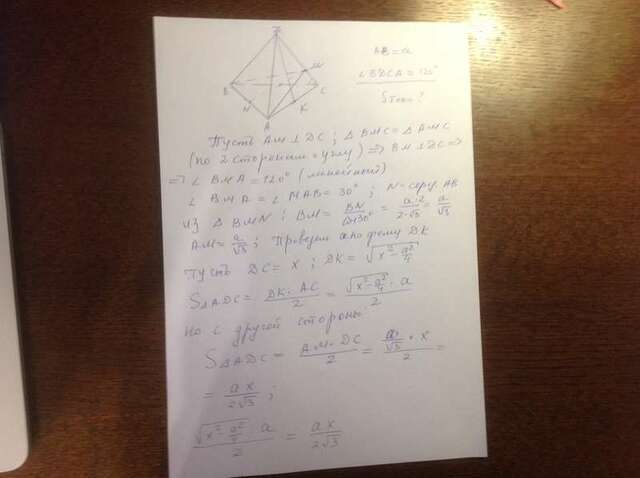 D
B
M
C
N
K
A
AB = a
∠BDCA = 120°
Sбок ?
Пусть AM ⊥ DC ; △BMC = △AMC
(по 2 сторонам и углу) => BM ⊥ DC =>
=> ∠BMA = 120° (линейный)
∠BMA = ∠MAB = 30° ; N - серед AB
из △BMN ; BM = BN/cos30° = a·2/2·√3 = a/√3
AM = a/√3 ; Проведем апофему DK
Пусть DC = x ; DK = √(x² - a²/4)
S△ADC = DK · AC/2 = √(x² - a²/4) · a/2
но с другой стороны
S△ADC = AM · DC/2 = a/√3 · x/2 =
= ax/2√3 ;
√(x² - a²/4) · a/2 = ax/2√3